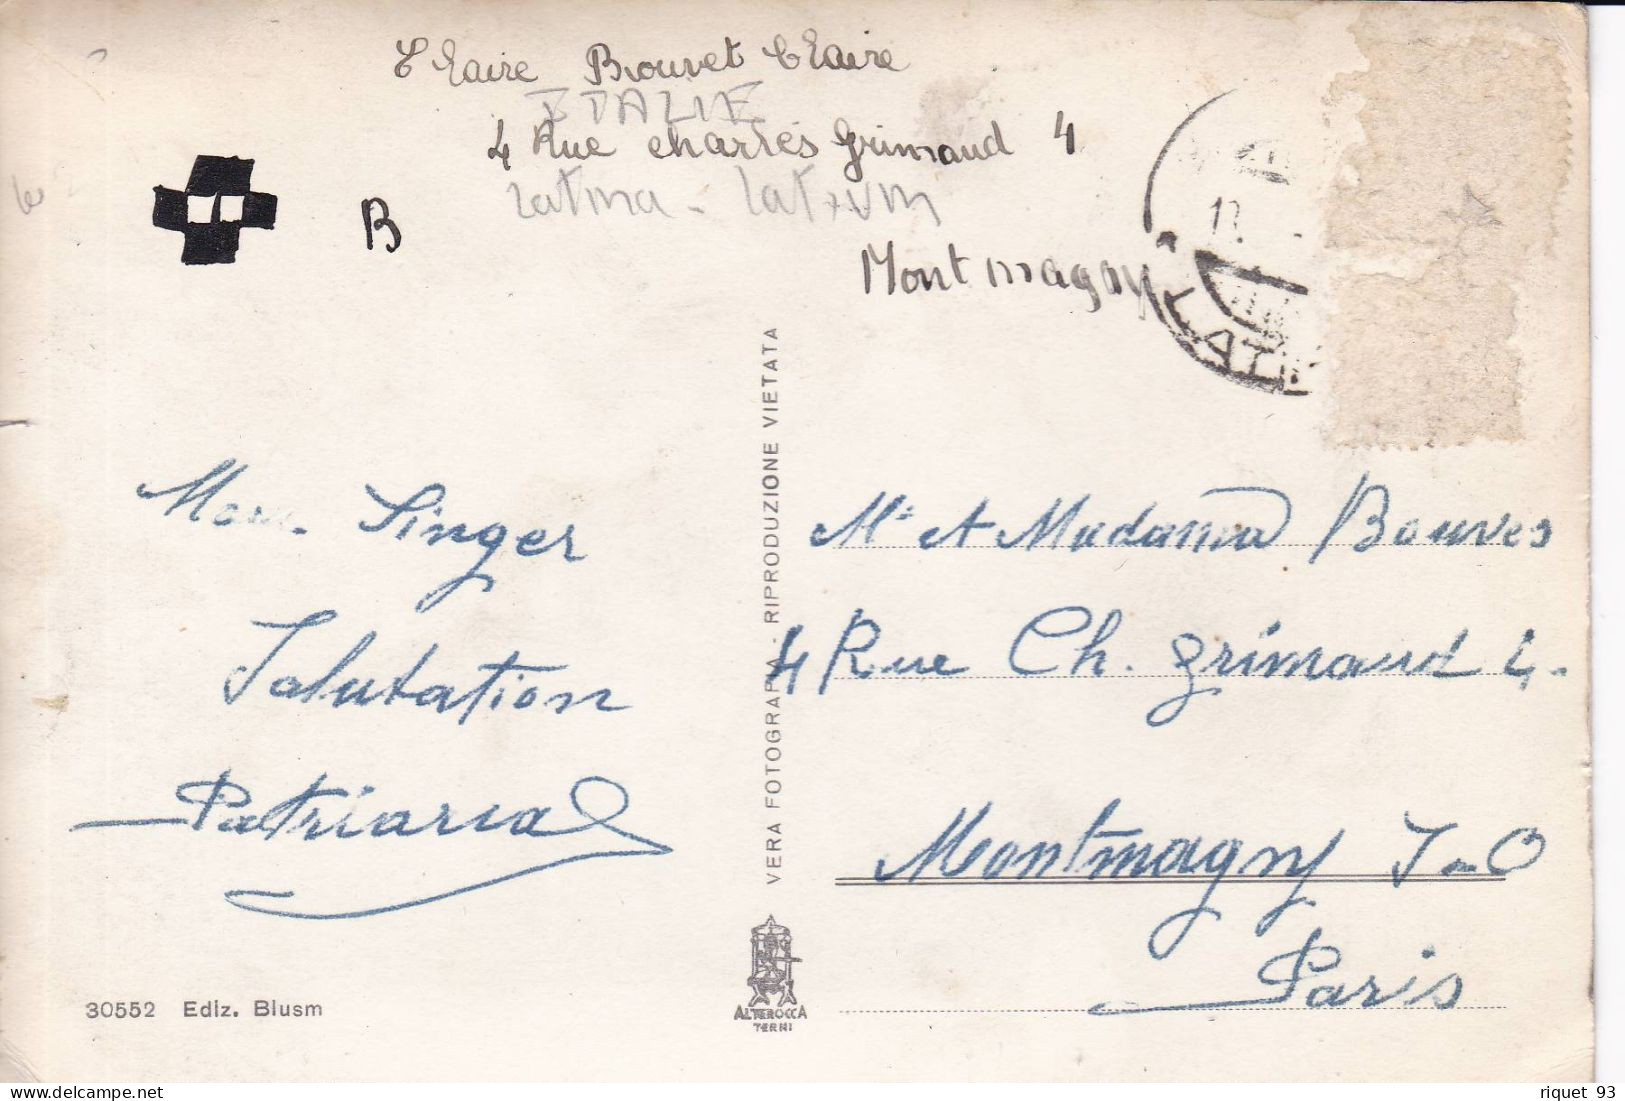 Claire Bouvet Claire
ITALIE
4 Rue charles Grimaud 4
Latina - Latium
B
Montmagny
17.
LATIN
VERA FOTOGRAFIA - RIPRODUZIONE VIETATA
Singer
Salutation
Mr et Madama Bouves
4 Rue Ch. Grimaud 4.
Montmagny S-O
Paris
30552 Ediz. Blusm
ALTEROCCA
TERNI
riquet 93